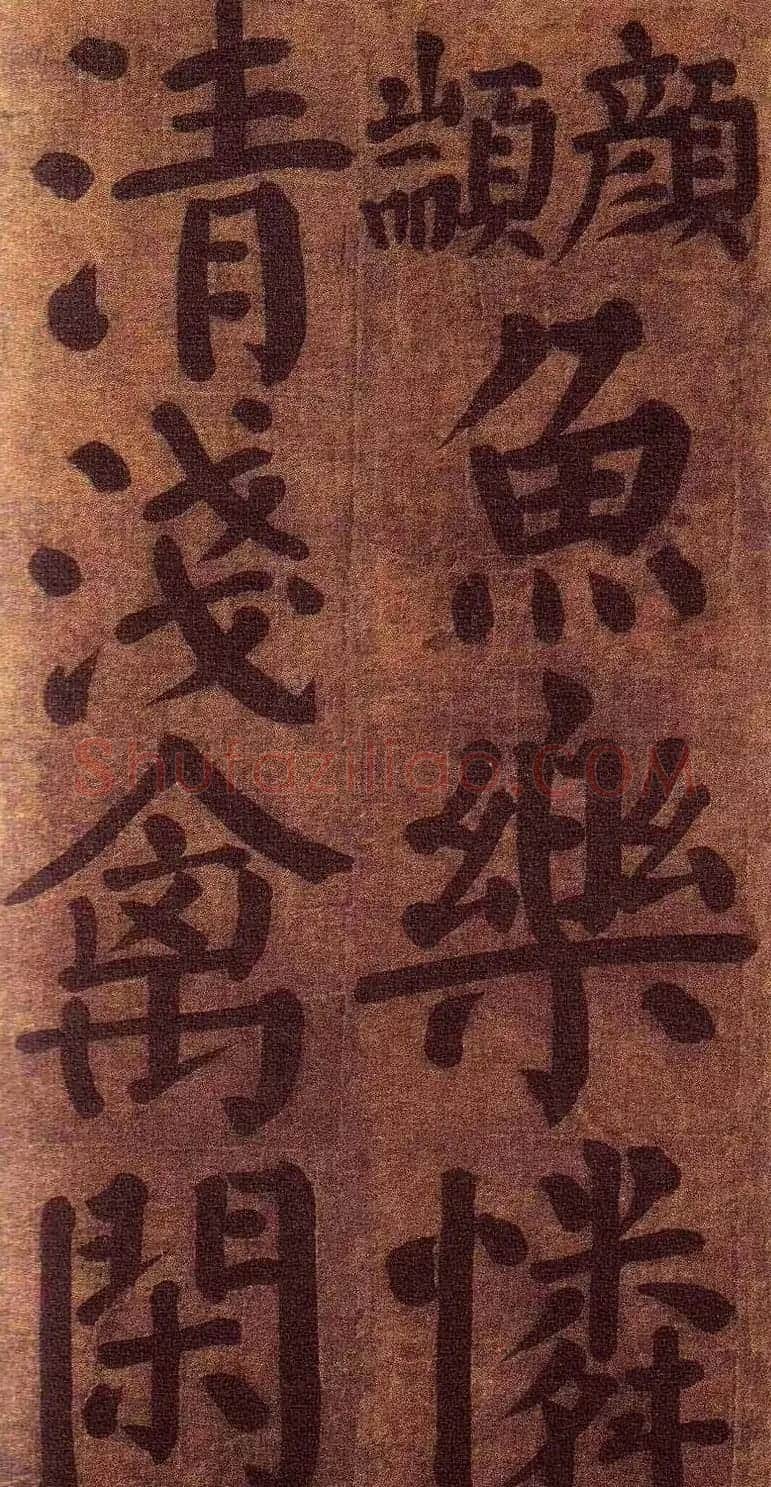 顔顓
魚樂憐
清淺禽閑
Shufaziliao.COM